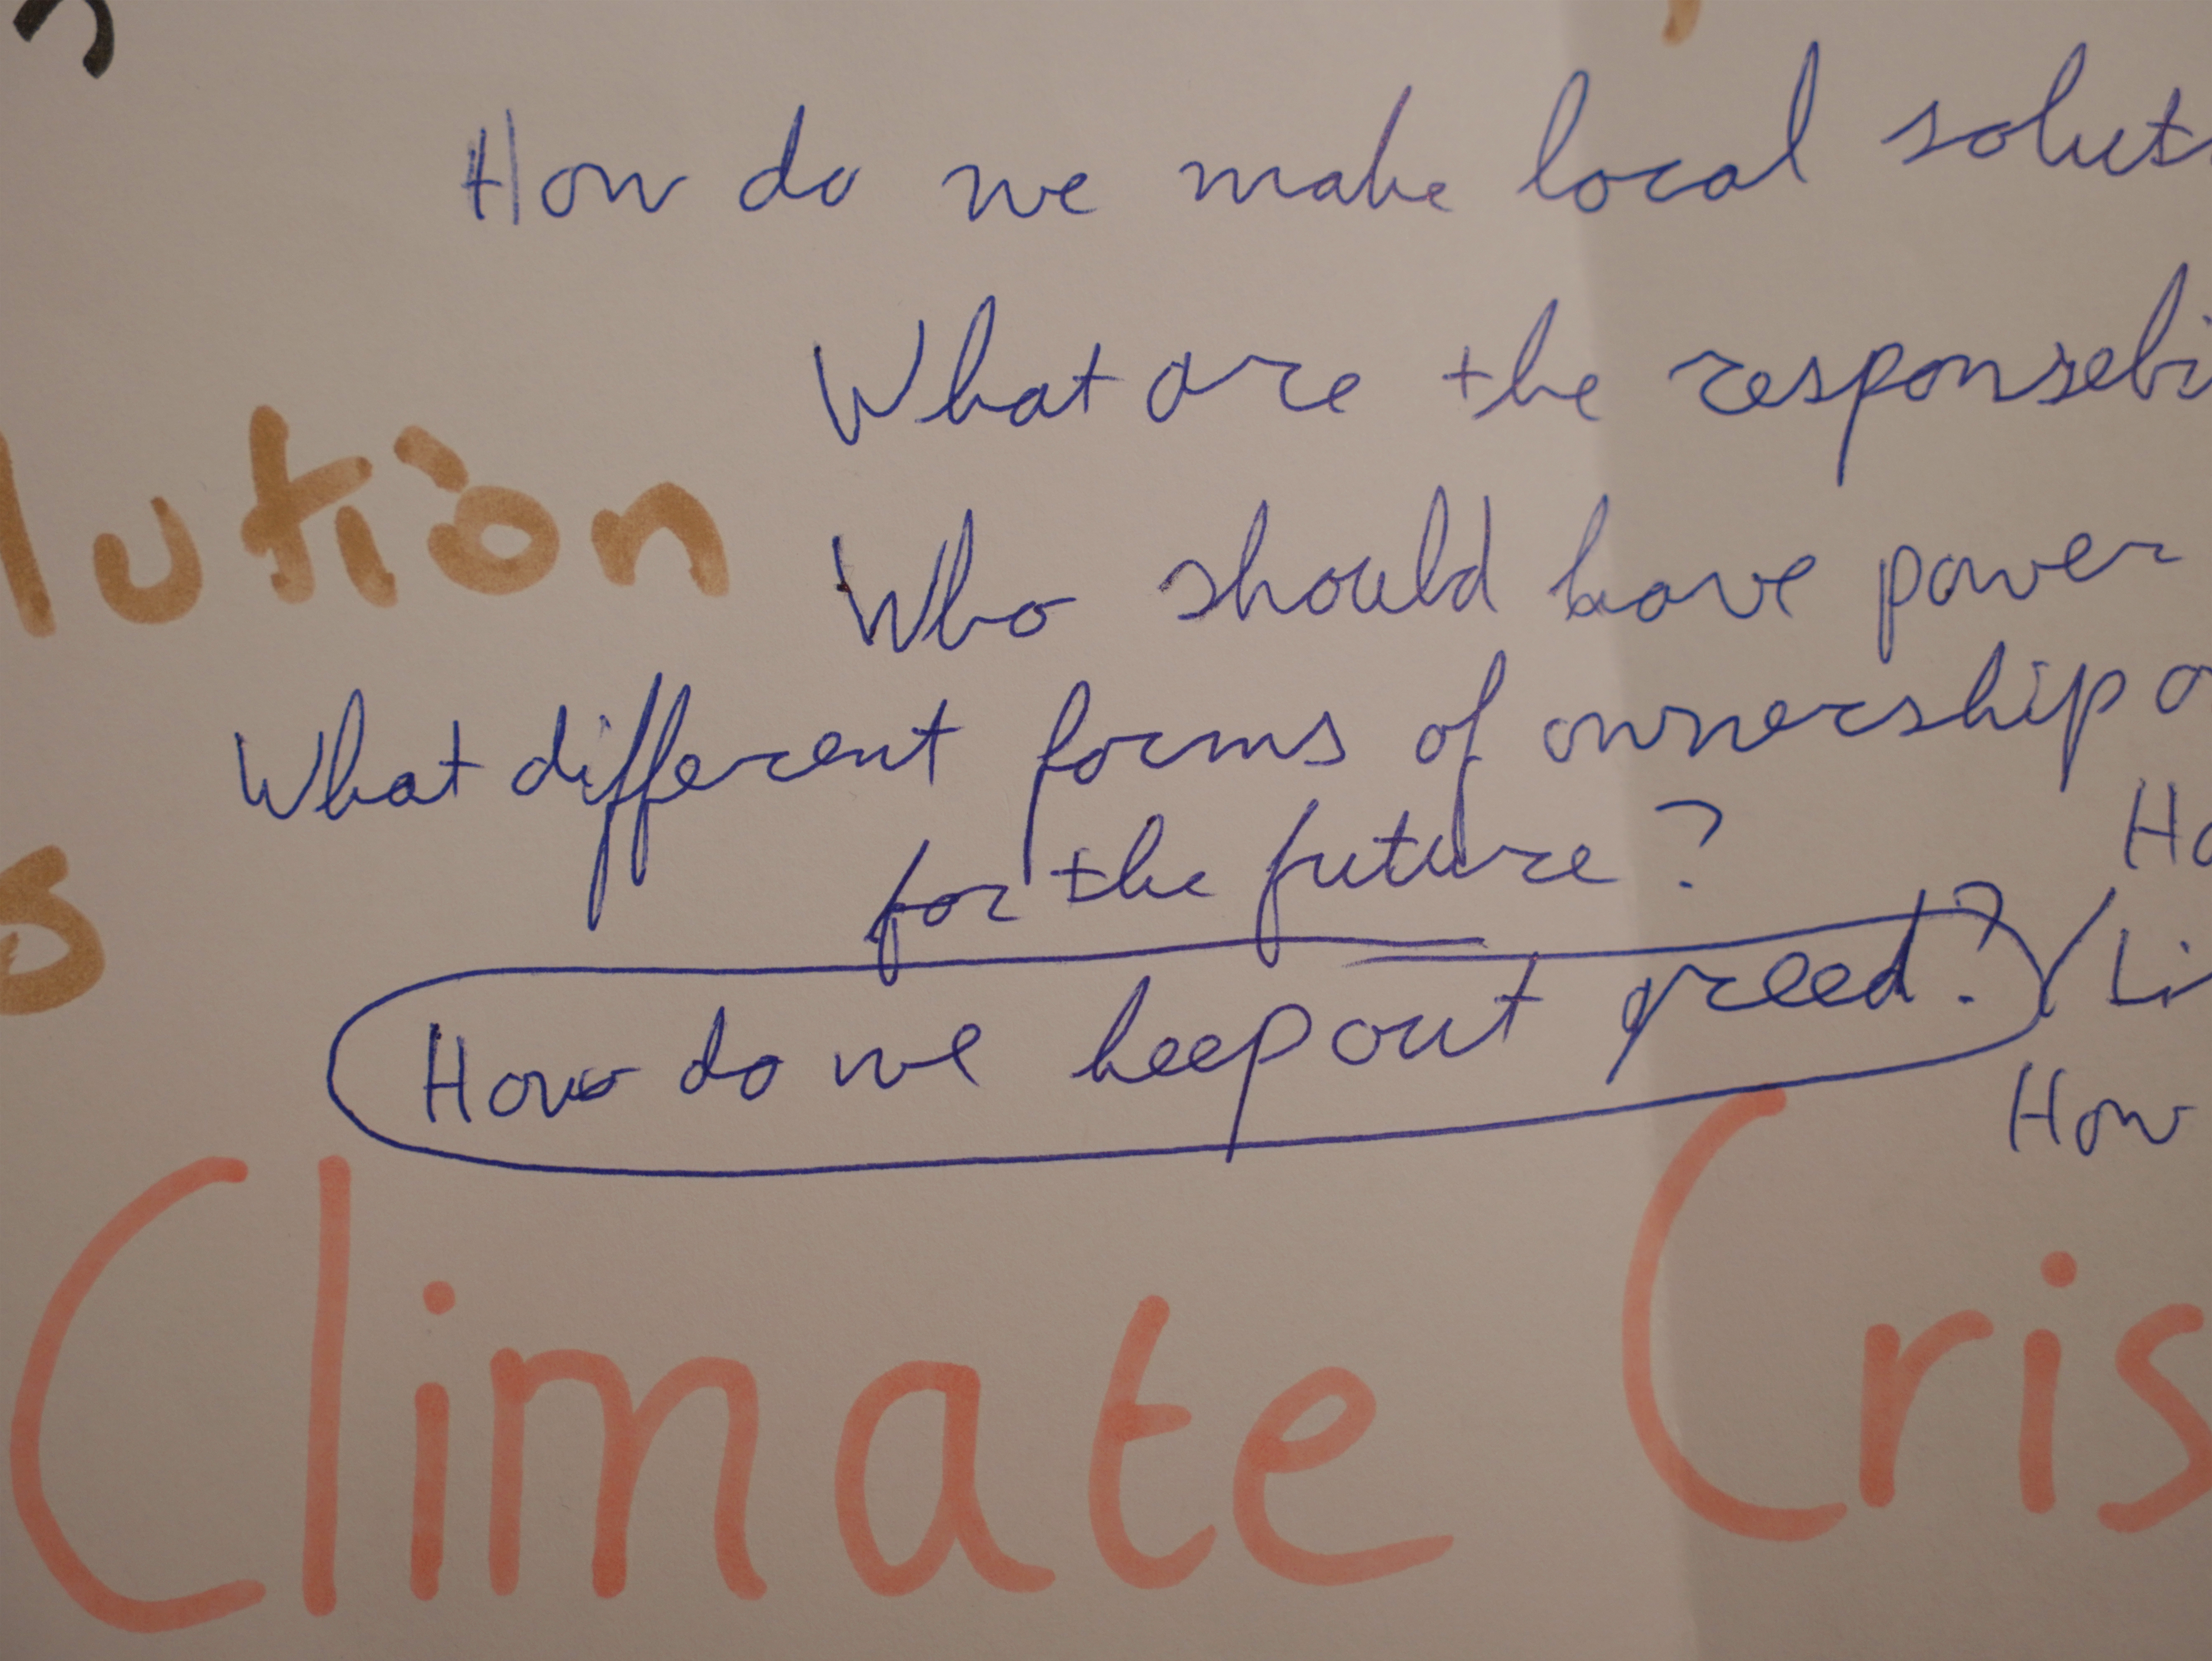 How do we make local solut
What are the responsebi
lution
Who should have power
What different forms of ownership
for the future?
Ho
s
How do we keep out greed? / Li
How
Climate Cris